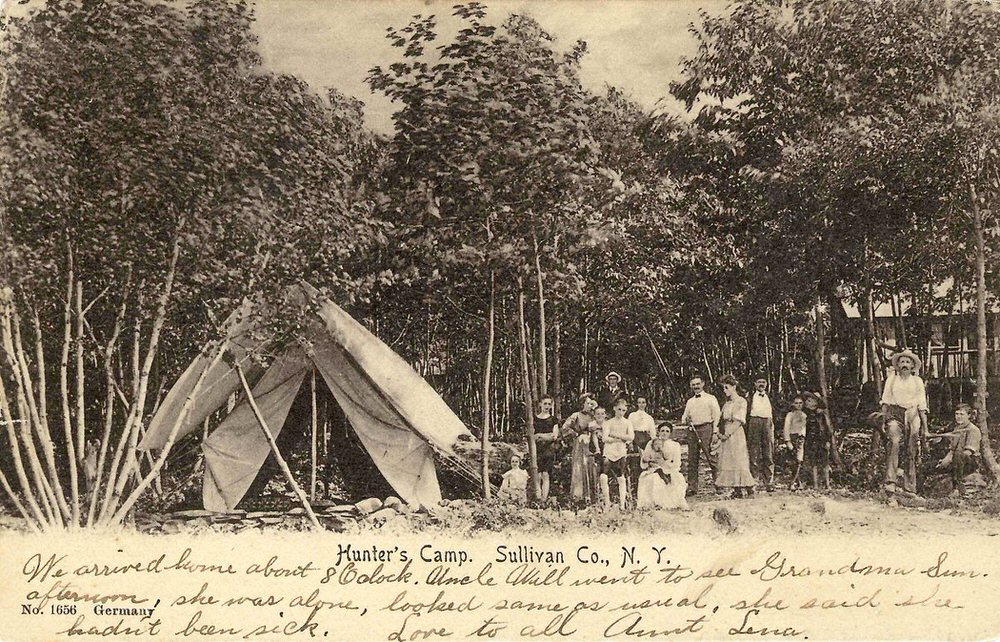 Hunter's Camp. Sullivan Co., N. Y.
We arrived home about 8 Oclock. Uncle Will went to see Grandma Sun.
afternoon, she was alone, looked same as usual, she said she
No. 1656 Germany
hadn't been sick. Love to all Aunt Lena.